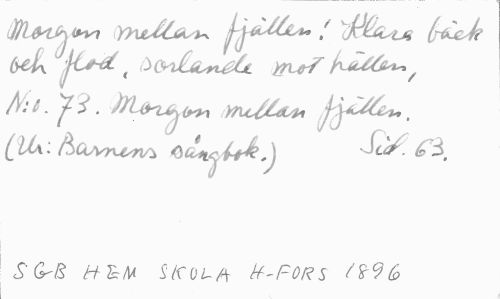 Morgon mellan fjällen! Klara bäck
och flod, sorlande mot hällen,
N:o. 73. Morgon mellan fjällen.
(Ur: Barnens sångbok.) Sid. 63.
SGB HEM SKOLA H-FORS 1896